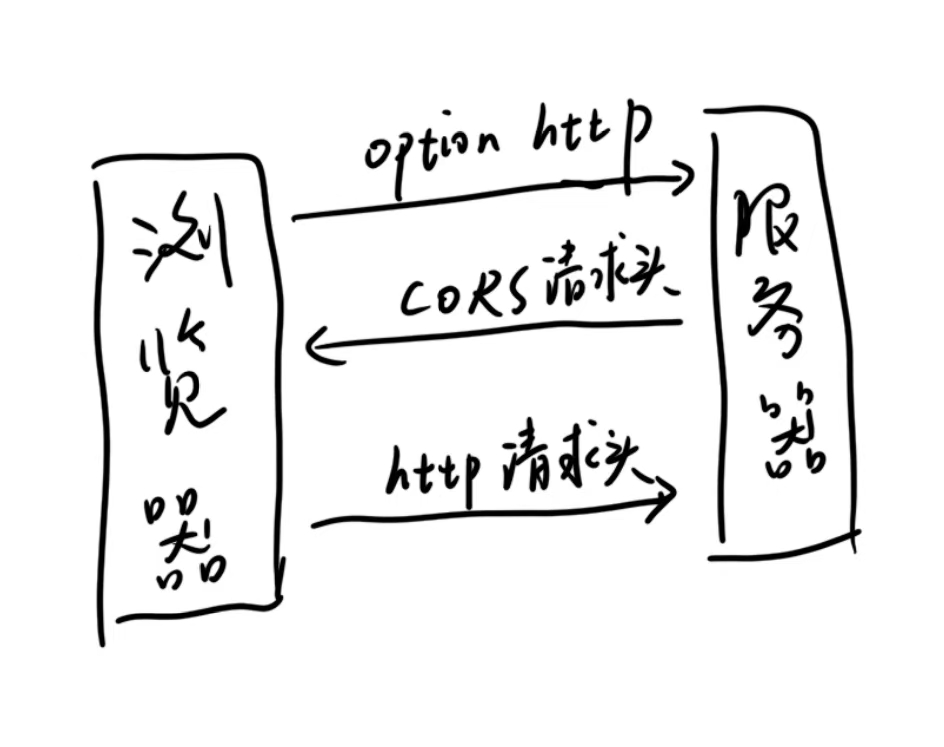 浏览器
option http
CORS 请求头
http 请求头
服务器